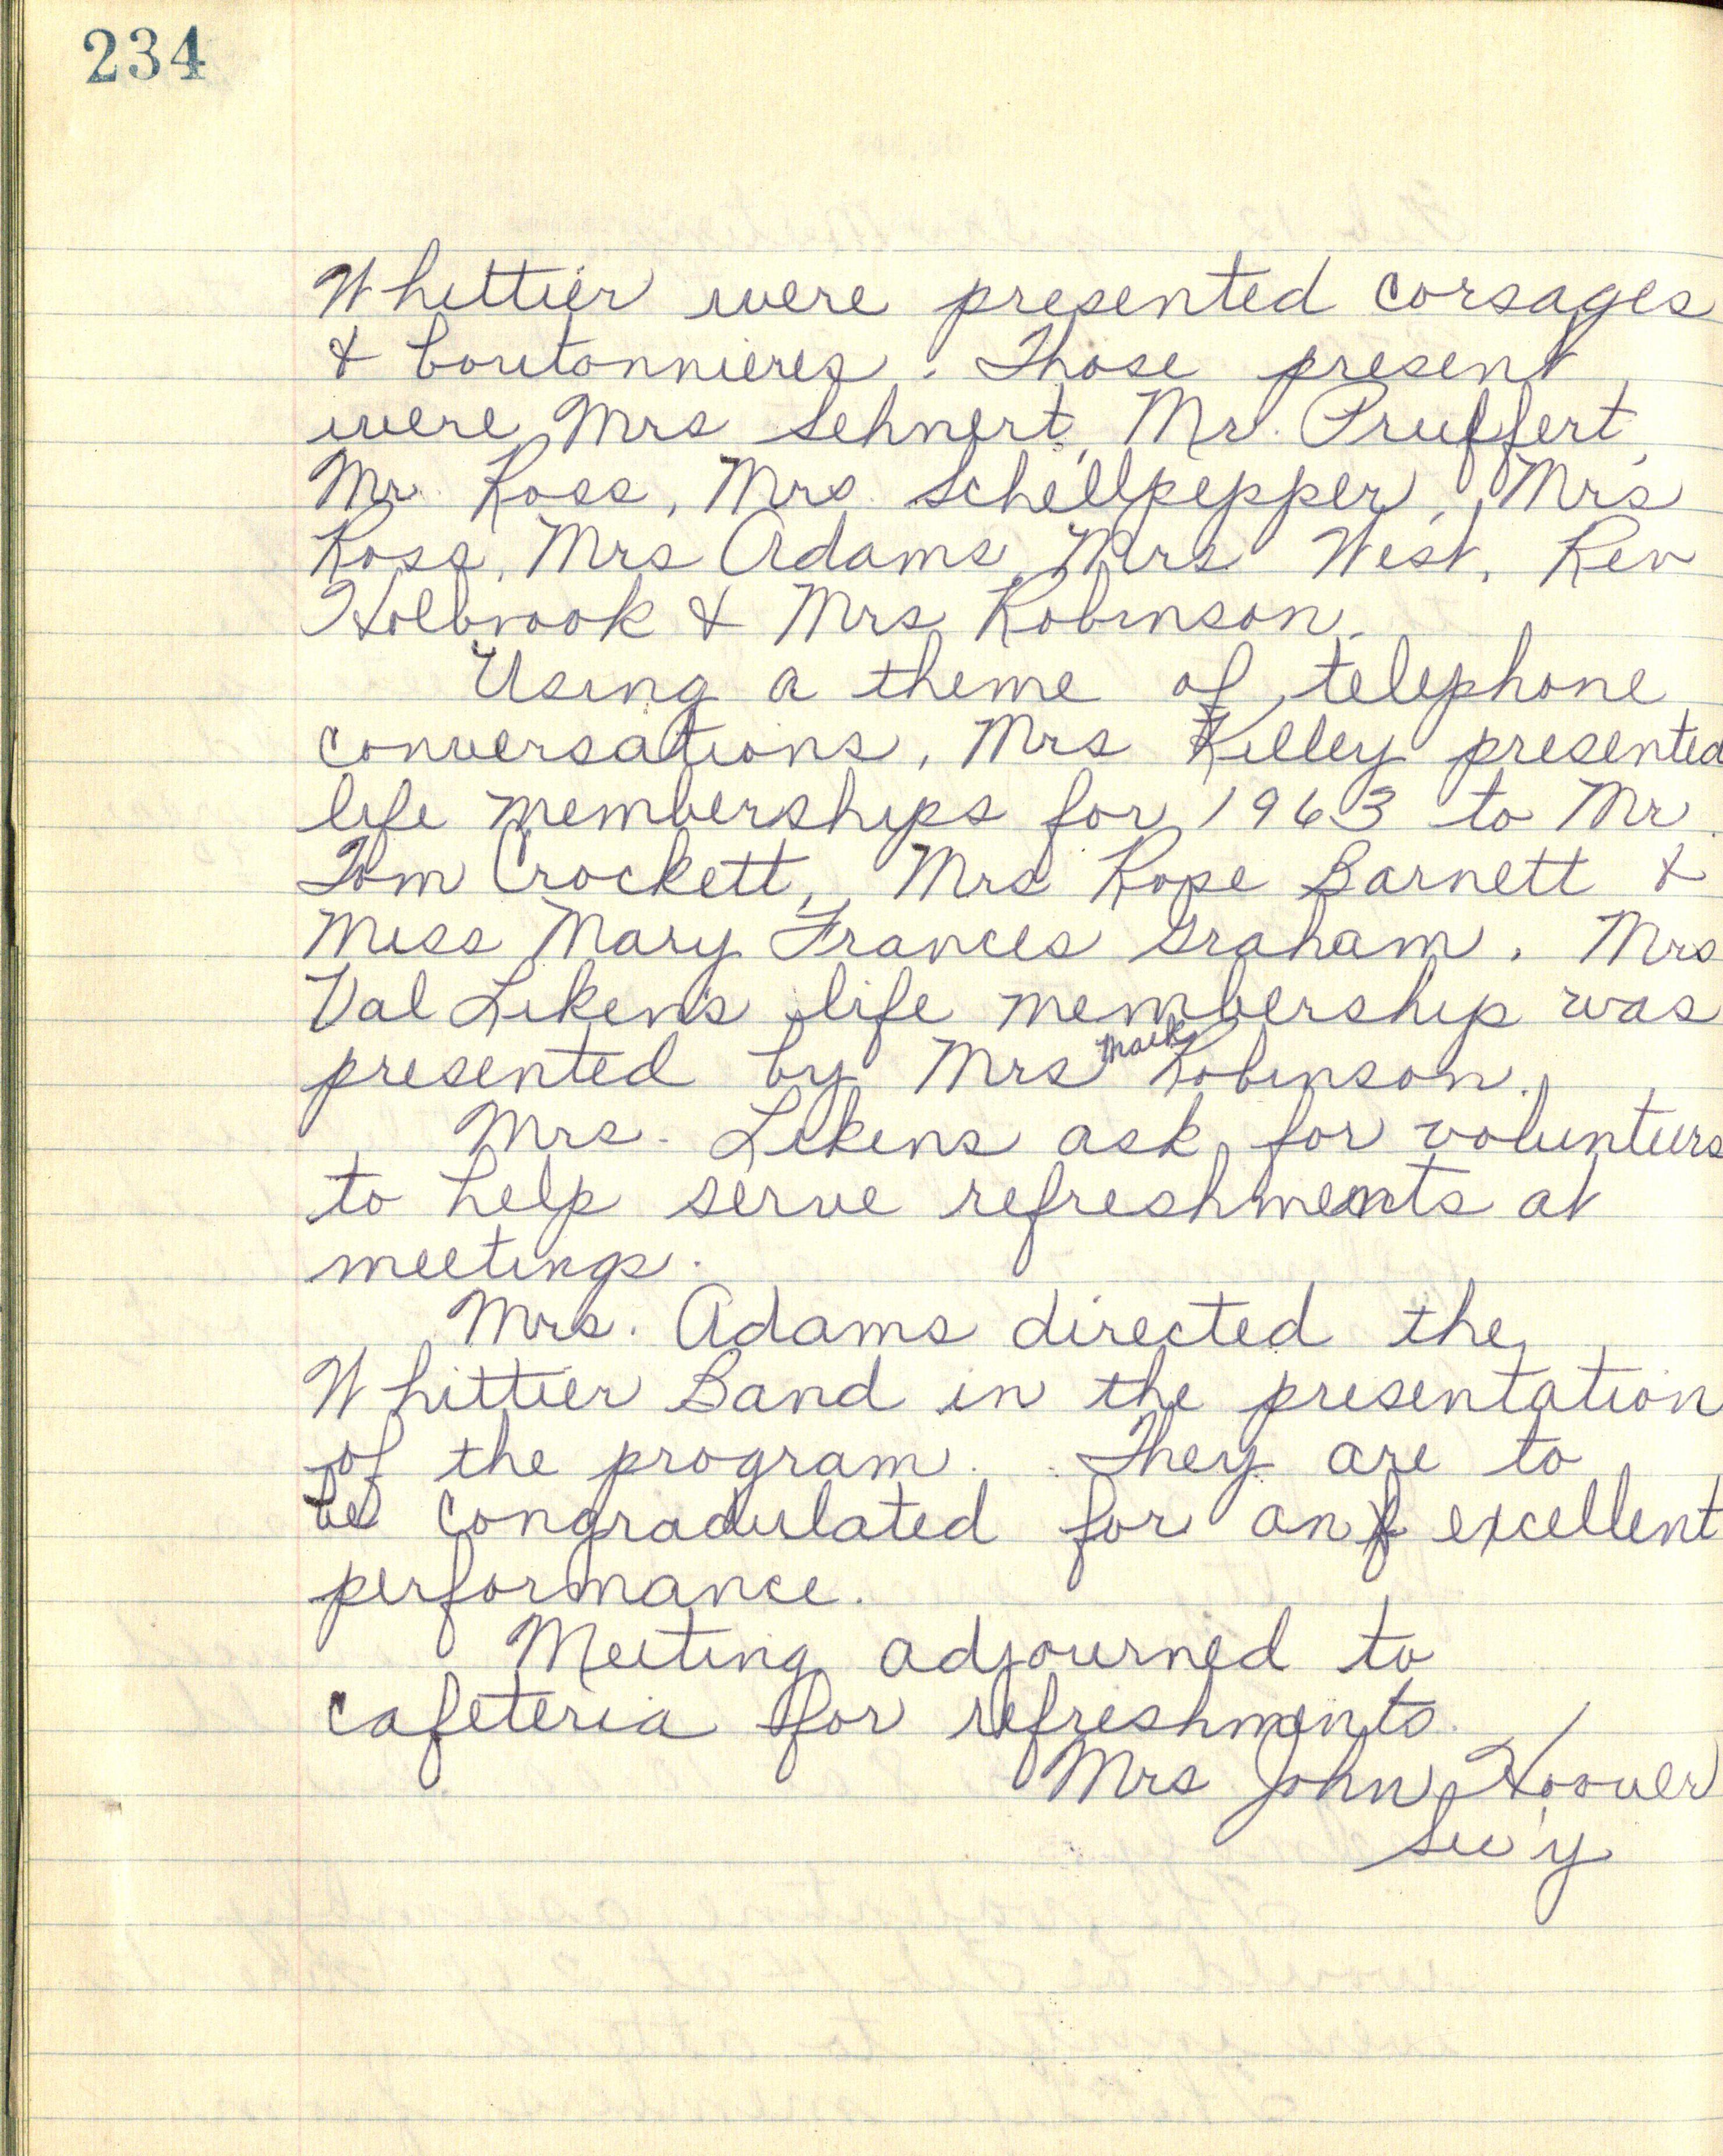 234
Whittier were presented corsages
& boutonnieres. Those present
were Mrs Sehnert, Mr. Prueffert,
Mr. Ross, Mrs. Schellpepper, Mrs
Ross, Mrs Adams, Mrs West, Rev
Holbrook & Mrs Robinson.
Using a theme of telephone
conversations, Mrs Kelley presented
life memberships for 1963 to Mr.
Tom Crockett, Mrs Rose Barnett &
Miss Mary Frances Graham. Mrs
Val Liken's life membership was
presented by Mrs Mark Robinson.
Mrs. Likens ask for volunteers
to help serve refreshments at
meetings.
Mrs. Adams directed the
Whittier Band in the presentation
of the program. They are to
be congradulated for an excellent
performance.
Meeting adjourned to
cafeteria for refreshments.
Mrs John Hoover
Sec'y